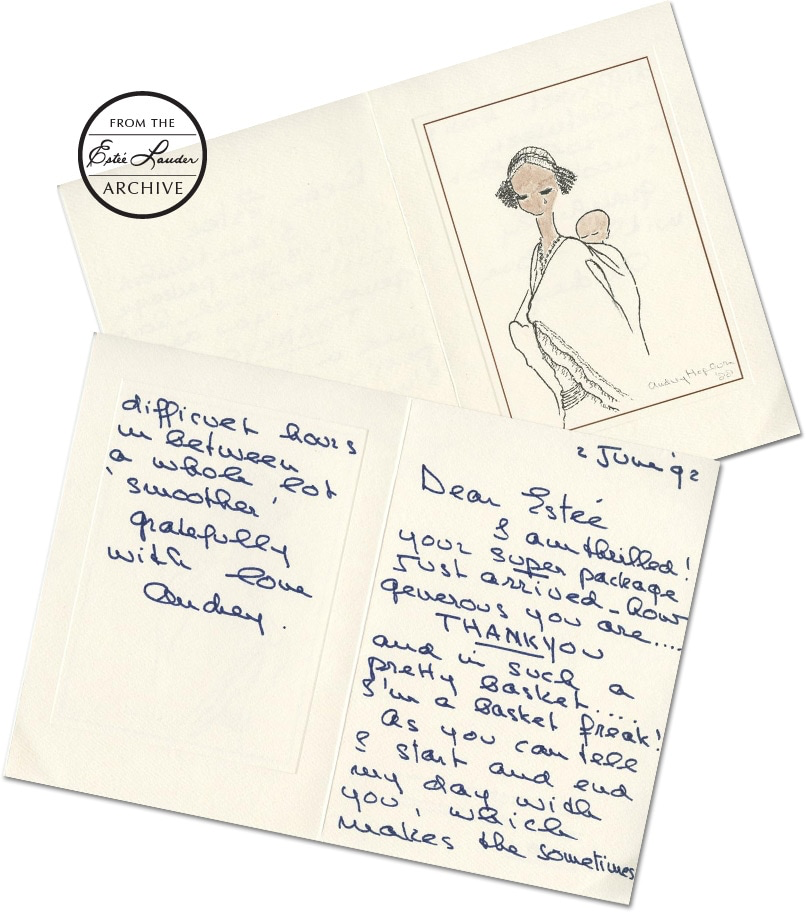 FROM THE
Estée Lauder
ARCHIVE
Audrey Hepburn
2 June '92
Dear Estée
I am thrilled!
your super package
Just arrived - How
generous you are....
THANK YOU
and in such a
pretty basket....
I'm a basket freak!
As you can tell
I start and end
my day with
you, which
makes the sometimes
difficult hours
in between
a whole lot
'smoother'
gratefully
with love
Audrey.